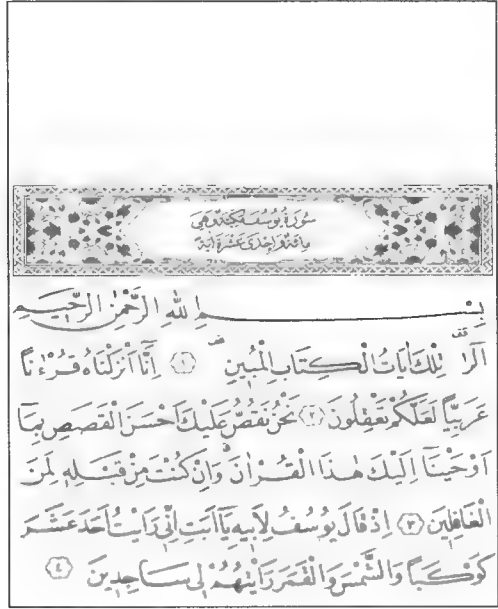 سُورَةُ يُوسُفَ مَكِّيَّةٌ وَهِيَ
مِائَةٌ وَاِحْدٰى عَشْرَةَ اٰيَةً
بِسْمِ اللهِ الرَّحْمٰنِ الرَّحِيمِ
الٓرٰ تِلْكَ اٰيَاتُ الْكِتَابِ الْمُبِينِ ﴿١﴾ اِنَّٓا اَنْزَلْنَاهُ قُرْءٰنًا
عَرَبِيًّا لَعَلَّكُمْ تَعْقِلُونَ ﴿٢﴾ نَحْنُ نَقُصُّ عَلَيْكَ اَحْسَنَ الْقَصَصِ بِمَٓا
اَوْحَيْنَٓا اِلَيْكَ هٰذَا الْقُرْاٰنَ وَاِنْ كُنْتَ مِنْ قَبْلِهِ لَمِنَ
الْغَافِلِينَ ﴿٣﴾ اِذْ قَالَ يُوسُفُ لِاَبِيهِ يَٓا اَبَتِ اِنِّي رَاَيْتُ اَحَدَ عَشَرَ
كَوْكَبًا وَالشَّمْسَ وَالْقَمَرَ رَاَيْتُهُمْ لِي سَاجِدِينَ ﴿٤﴾